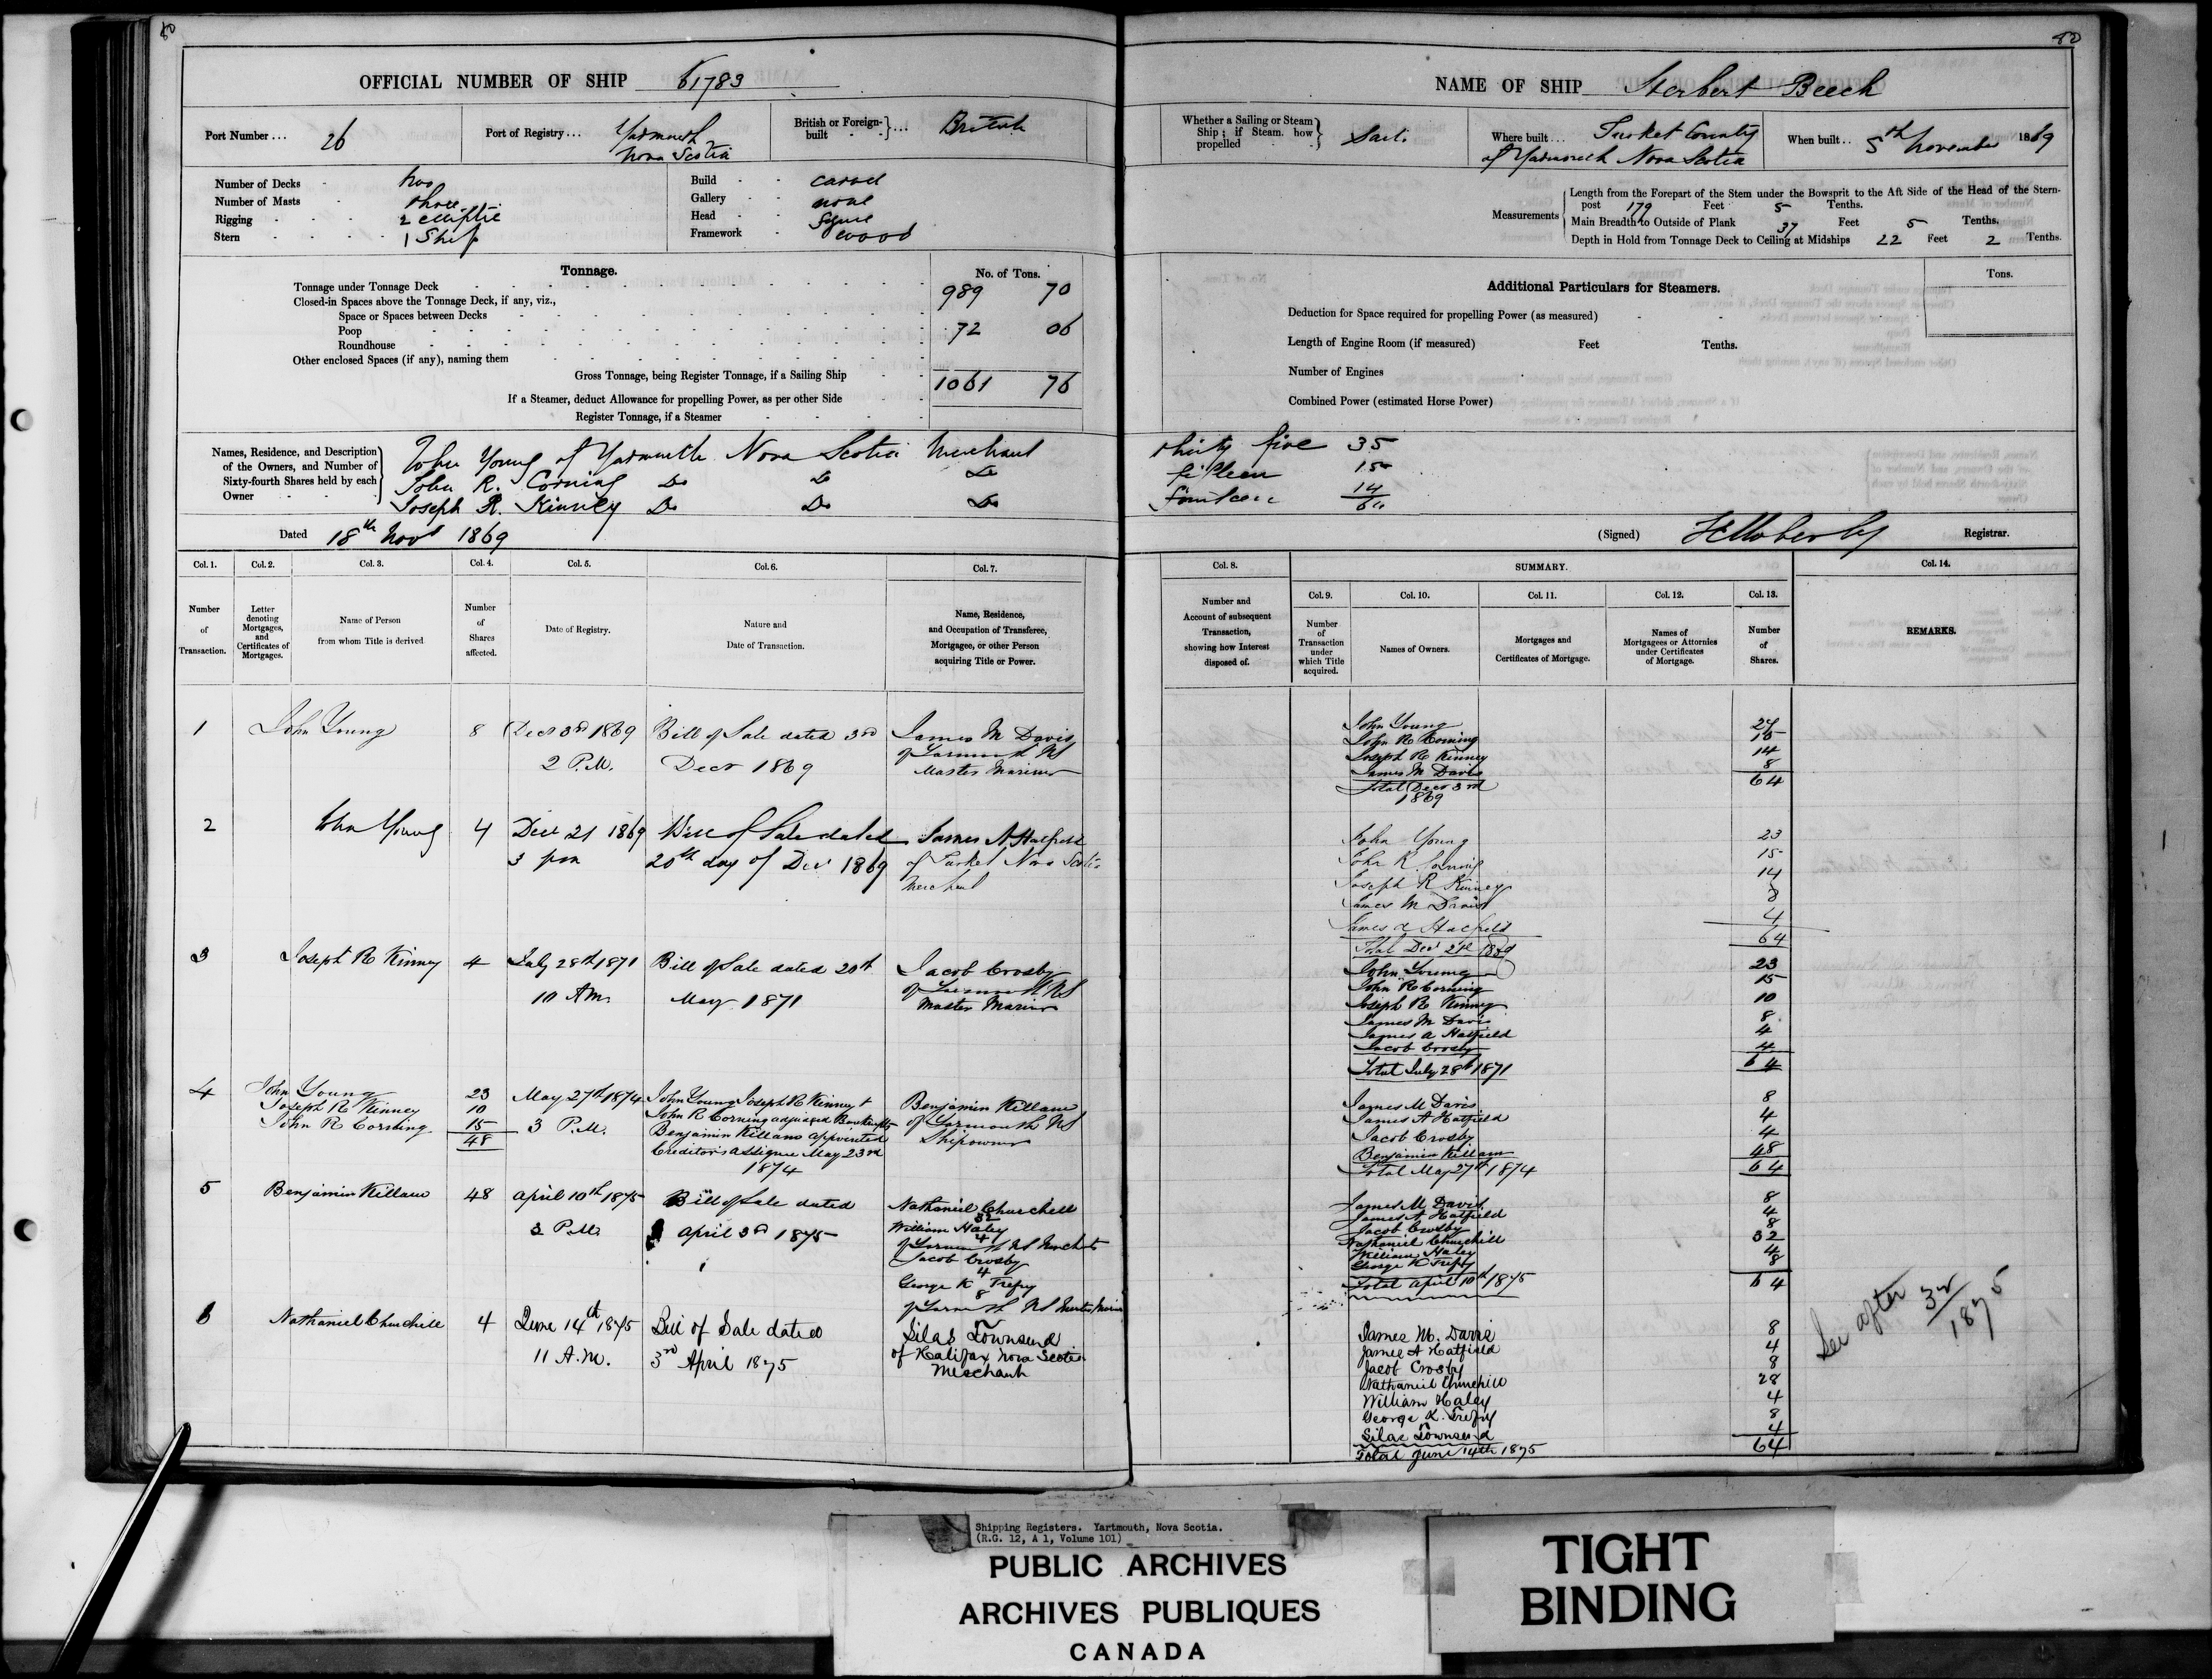 80
OFFICIAL NUMBER OF SHIP 61783
Port Number ... 26
Port of Registry ... Yarmouth Nova Scotia
British or Foreign-built ... British
Number of Decks - two
Number of Masts - three
Rigging - 2 elliptic
Stern - 1 Ship
Build - carvel
Gallery - none
Head - figure
Framework - wood
Tonnage. No. of Tons.
Tonnage under Tonnage Deck 989 70
Closed-in Spaces above the Tonnage Deck, if any, viz.,
Space or Spaces between Decks
Poop 72 06
Roundhouse
Other enclosed Spaces (if any), naming them
Gross Tonnage, being Register Tonnage, if a Sailing Ship 1061 76
If a Steamer, deduct Allowance for propelling Power, as per other Side
Register Tonnage, if a Steamer
Names, Residence, and Description of the Owners, and Number of Sixty-fourth Shares held by each Owner
John Young of Yarmouth Nova Scotia Merchant
John R. Corning Do Do Do
Joseph R. Kinney Do Do Do
Dated 18th Novr 1869
Col. 1. Col. 2. Col. 3. Col. 4. Col. 5. Col. 6. Col. 7.
Number of Transaction.
Letter denoting Mortgages, and Certificates of Mortgages.
Name of Person from whom Title is derived
Number of Shares affected.
Date of Registry.
Nature and Date of Transaction.
Name, Residence, and Occupation of Transferee, Mortgagee, or other Person acquiring Title or Power.
1 John Young 8 Decr 3rd 1869 Bill of Sale dated 3rd James M Davis
of Yarmouth NS
2 P.M. Decr 1869 Master Mariner
2 John Young 4 Decr 21 1869 Bill of Sale dated James A Hatfield
3 pm 20th day of Decr 1869 of Tusket Nova Scotia
Merchant
3 Joseph R Kinney 4 July 28th 1871 Bill of Sale dated 20th Jacob Crosby
of Yarmouth NS
10 AM. May 1871 Master Mariner
4 John Young 23 May 27th 1874 John Young Joseph R Kinney +
Joseph R Kinney 10 John R Corning adjudged Bankrupts Benjamin Killam
John R Corning 15 3 P.M. Benjamin Killam appointed of Yarmouth NS
48 Creditors assignee May 23rd Shipowner
1874
5 Benjamin Killam 48 April 10th 1875 Bill of Sale dated Nathaniel Churchill
32
3 P.M. April 3rd 1875 William Haley
4
of Yarmouth NS Merchants
Jacob Crosby
4
George K Trefry
8
of Yarmouth NS Master Mariners
6 Nathaniel Churchill 4 June 14th 1875 Bill of Sale dated Silas Townsend
11 A.M. 3rd April 1875 of Halifax Nova Scotia
Merchant
80
NAME OF SHIP Herbert Beech
Whether a Sailing or Steam Ship; if Steam, how propelled Sail.
Where built ... Tusket County
of Yarmouth Nova Scotia
When built .. 5th November 1869
Measurements
Length from the Forepart of the Stem under the Bowsprit to the Aft Side of the Head of the Stern-
post 179 Feet 5 Tenths.
Main Breadth to Outside of Plank 37 Feet 5 Tenths.
Depth in Hold from Tonnage Deck to Ceiling at Midships 22 Feet 2 Tenths.
Additional Particulars for Steamers. Tons.
Deduction for Space required for propelling Power (as measured)
Length of Engine Room (if measured) Feet Tenths.
Number of Engines
Combined Power (estimated Horse Power)
thirty five 35
fifteen 15
fourteen 14
64
(Signed) Registrar.
Col. 8. SUMMARY. Col. 14.
Col. 9. Col. 10. Col. 11. Col. 12. Col. 13.
Number and Account of subsequent Transaction, showing how Interest disposed of.
Number of Transaction under which Title acquired.
Names of Owners.
Mortgages and Certificates of Mortgage.
Names of Mortgagees or Attornies under Certificates of Mortgage.
Number of Shares.
REMARKS.
John Young 27
John R Corning 15
Joseph R Kinney 14
James M Davis 8
Total Decr 3rd 64
1869
John Young 23
John R Corning 15
Joseph R Kinney 14
James M Davis 8
James A Hatfield 4
Total Decr 21st 1869 64
John Young 23
John R Corning 15
Joseph R Kinney 10
James M Davis 8
James A Hatfield 4
Jacob Crosby 4
Total July 28th 1871 64
James M Davis 8
James A Hatfield 4
Jacob Crosby 4
Benjamin Killam 48
Total May 27th 1874 64
James M Davis 8
James A Hatfield 4
Jacob Crosby 8
Nathaniel Churchill 32
William Haley 4
George K Trefry 8
Total April 10th 1875 64
James M. Davis 8
James A Hatfield 4
Jacob Crosby 8
Nathaniel Churchill 28
William Haley 4
George K. Trefry 8
Silas Townsend 4
Total June 14th 1875 64
See after 32/1875
Shipping Registers. Yartmouth, Nova Scotia.
(R.G. 12, A 1, Volume 101)
PUBLIC ARCHIVES
ARCHIVES PUBLIQUES
CANADA
TIGHT
BINDING